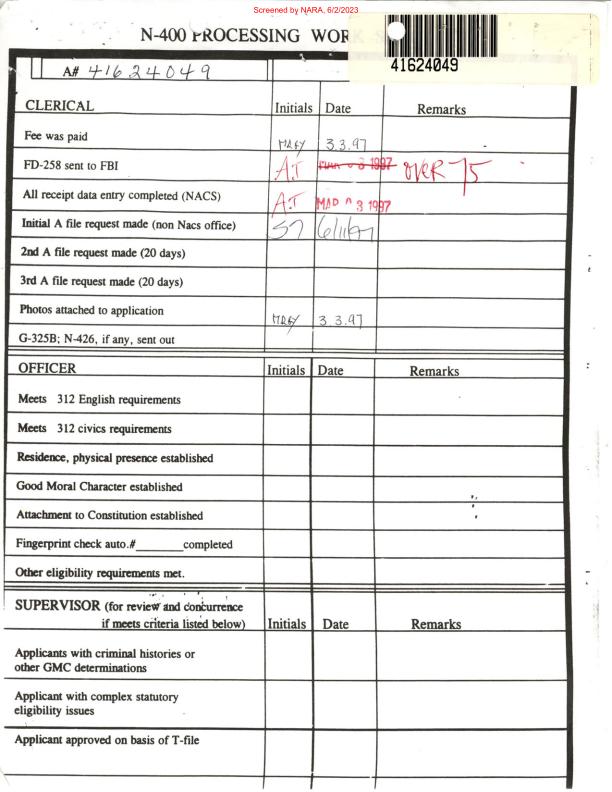 Screened by NARA, 6/2/2023
N-400 PROCESSING WOR
41624049
A# 41624049
CLERICAL Initials Date Remarks
Fee was paid MRGY 3.3.97
FD-258 sent to FBI A.T MAR 03 1997 OVER 75
All receipt data entry completed (NACS) A.T MAR 03 1997
Initial A file request made (non Nacs office) 6/11/97
2nd A file request made (20 days)
3rd A file request made (20 days)
Photos attached to application MRGY 3.3.97
G-325B; N-426, if any, sent out
OFFICER Initials Date Remarks
Meets 312 English requirements
Meets 312 civics requirements
Residence, physical presence established
Good Moral Character established
Attachment to Constitution established
Fingerprint check auto.#________completed
Other eligibility requirements met.
SUPERVISOR (for review and concurrence
if meets criteria listed below) Initials Date Remarks
Applicants with criminal histories or
other GMC determinations
Applicant with complex statutory
eligibility issues
Applicant approved on basis of T-file